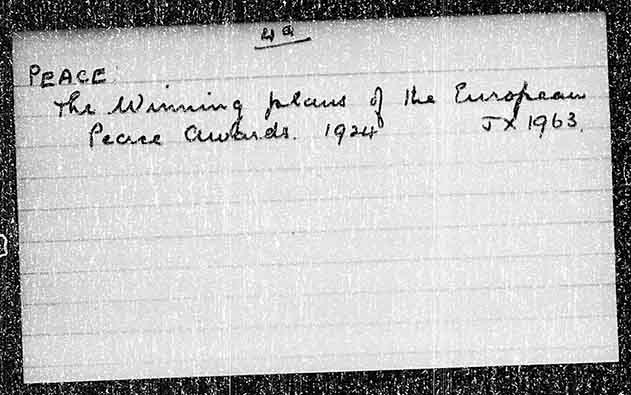 4a
PEACE:
The Winning plans of the European
Peace Awards. 1924 JX 1963.